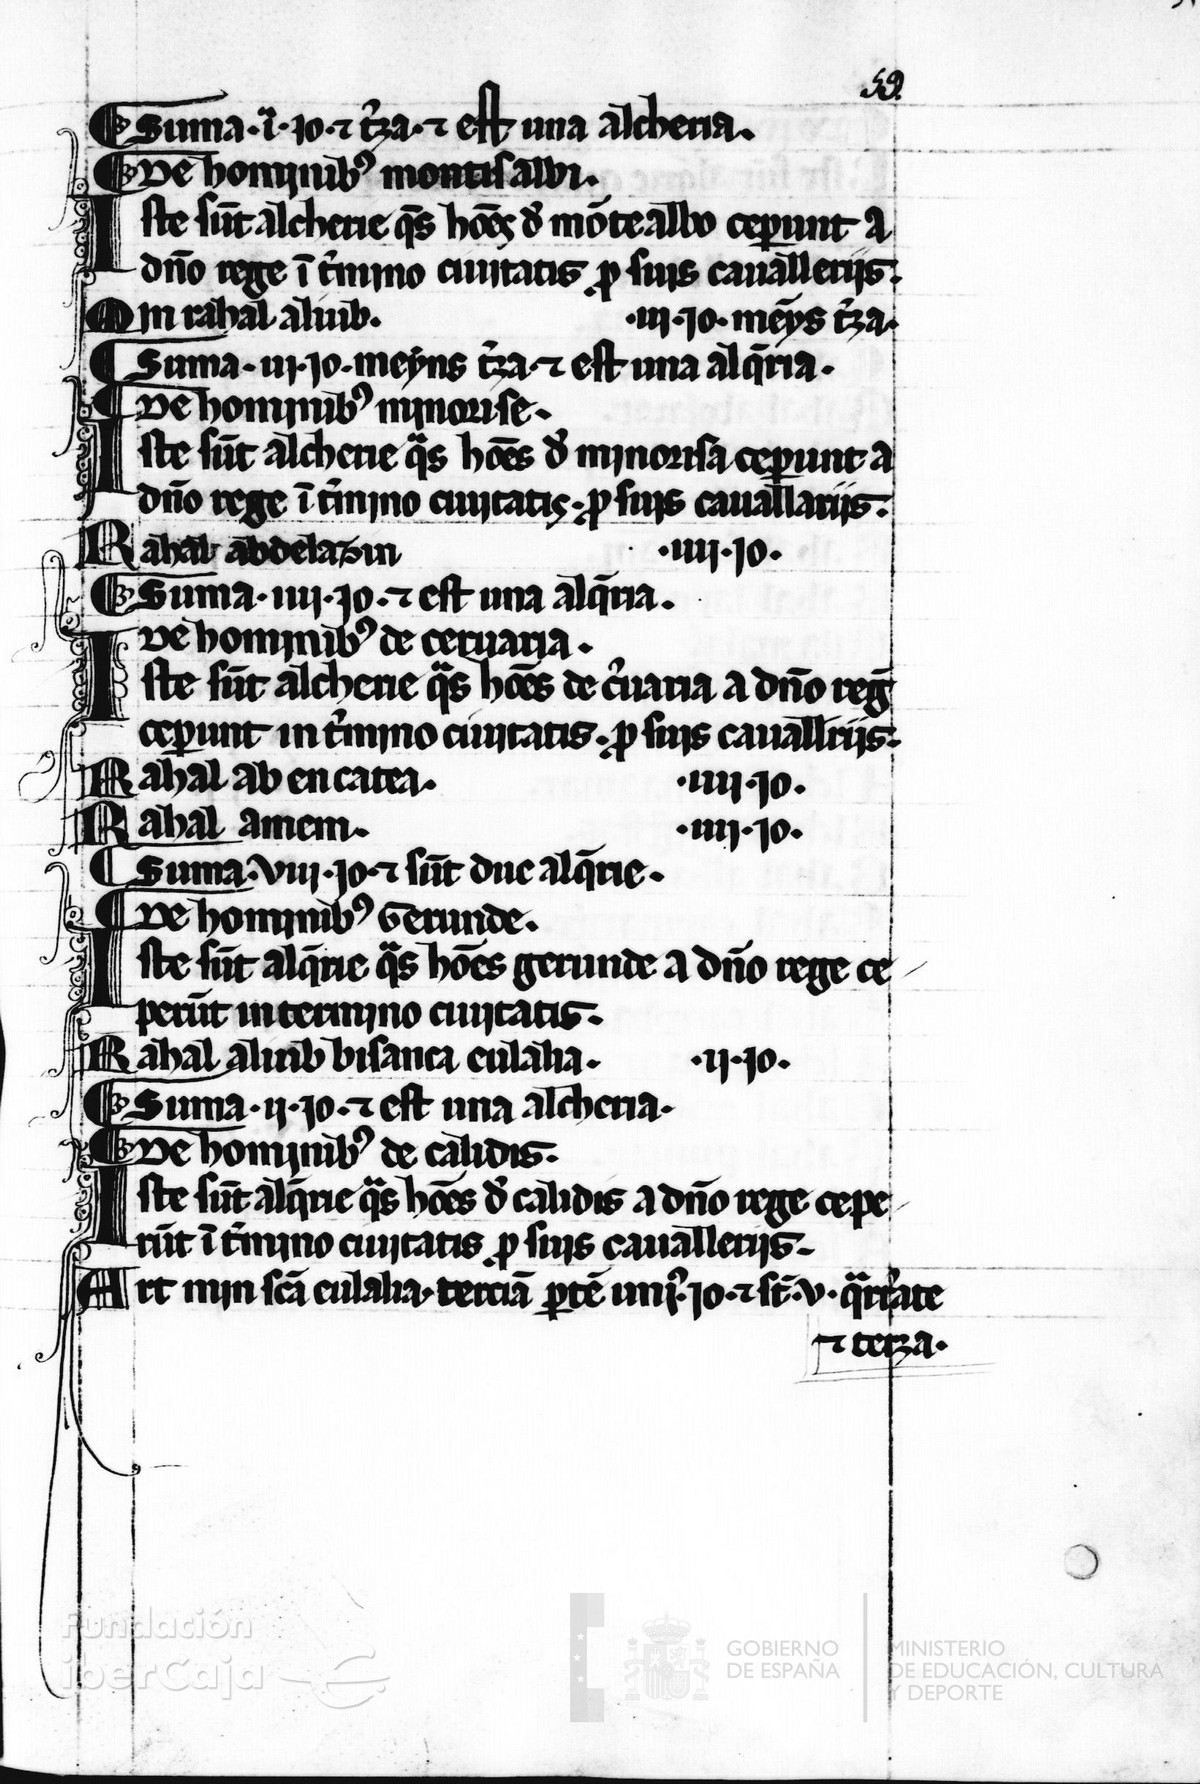 59.
Suma · ī · jo · ⁊ t̉za · ⁊ est una alcheria.
De hominib⁹ montisalbi.
Iste sūt alcherie q̄s hōēs đ mōtealbo ceperunt a
dn̄o rege ī t̉mino ciuitatis ꝓ suis cauallerijs.
Om rahal aluib. ·iii·jo· mēys t̉za.
Suma · iii·jo· meyns t̉za · ⁊ est una alq̄ria.
De hominib⁹ minorise.
Iste sūt alcherie q̄s hōēs đ minorisa ceperunt a
dn̄o rege ī t̉mino ciuitatis · ꝓ suis cauallarijs.
Rahal abdelazin ·iiii·jo·
Suma · iiii·jo· ⁊ est una alq̄ria.
De hominib⁹ de ceruaria.
Iste sūt alcherie q̄s hōēs de c̉uaria a dn̄o reḡ
ceperunt in t̉mino ciuitatis · ꝓ suis cauallriis.
Rahal ab en catea. ·iiii·jo·
Rahal amem. ·iiii·jo·
Suma · viii·jo· ⁊ sūt due alq̄rie.
De hominib⁹ Gerunde.
Iste sūt alq̄rie q̄s hōēs gerunde a dn̄o rege ce
perūt in termino ciuitatis.
Rahal aluib bisanca culalia. ·ii·jo·
Suma · ii·jo· ⁊ est una alcheria.
De hominib⁹ de calidis.
Iste sūt alq̄rie q̄s hōēs đ calidis a dn̄o rege cepe
rūt ī t̉mino ciuitatis ꝓ suis cauallerijs.
Art min sc̄a culalia · terciā ꝑtē uni⁹ · jo · ⁊ st̄ · v · q̄rt̉ate
⁊ terza.
Fundación
iberCaja
GOBIERNO
DE ESPAÑA
MINISTERIO
DE EDUCACIÓN, CULTURA
Y DEPORTE